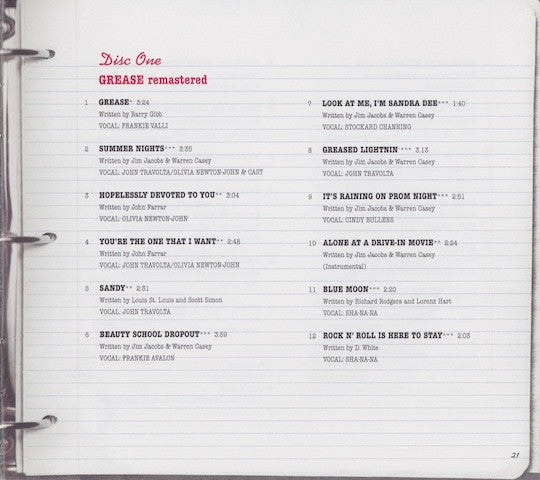 Disc One
GREASE remastered
1 GREASE* 3:24
Written by Barry Gibb
VOCAL: FRANKIE VALLI
2 SUMMER NIGHTS*** 3:35
Written by Jim Jacobs & Warren Casey
VOCAL: JOHN TRAVOLTA/OLIVIA NEWTON-JOHN & CAST
3 HOPELESSLY DEVOTED TO YOU** 3:04
Written by John Farrar
VOCAL: OLIVIA NEWTON-JOHN
4 YOU'RE THE ONE THAT I WANT** 2:48
Written by John Farrar
VOCAL: JOHN TRAVOLTA/OLIVIA NEWTON-JOHN
5 SANDY** 2:31
Written by Louis St. Louis and Scott Simon
VOCAL: JOHN TRAVOLTA
6 BEAUTY SCHOOL DROPOUT*** 3:59
Written by Jim Jacobs & Warren Casey
VOCAL: FRANKIE AVALON
7 LOOK AT ME, I'M SANDRA DEE*** 1:40
Written by Jim Jacobs & Warren Casey
VOCAL: STOCKARD CHANNING
8 GREASED LIGHTNIN'*** 3.13
Written by Jim Jacobs & Warren Casey
VOCAL: JOHN TRAVOLTA
9 IT'S RAINING ON PROM NIGHT*** 2:51
Written by Jim Jacobs & Warren Casey
VOCAL: CINDY BULLENS
10 ALONE AT A DRIVE-IN MOVIE** 2:24
Written by Jim Jacobs & Warren Casey
(Instrumental)
11 BLUE MOON*** 2:20
Written by Richard Rodgers and Lorenz Hart
VOCAL: SHA-NA-NA
12 ROCK N' ROLL IS HERE TO STAY*** 2:03
Written by D. White
VOCAL: SHA-NA-NA
21